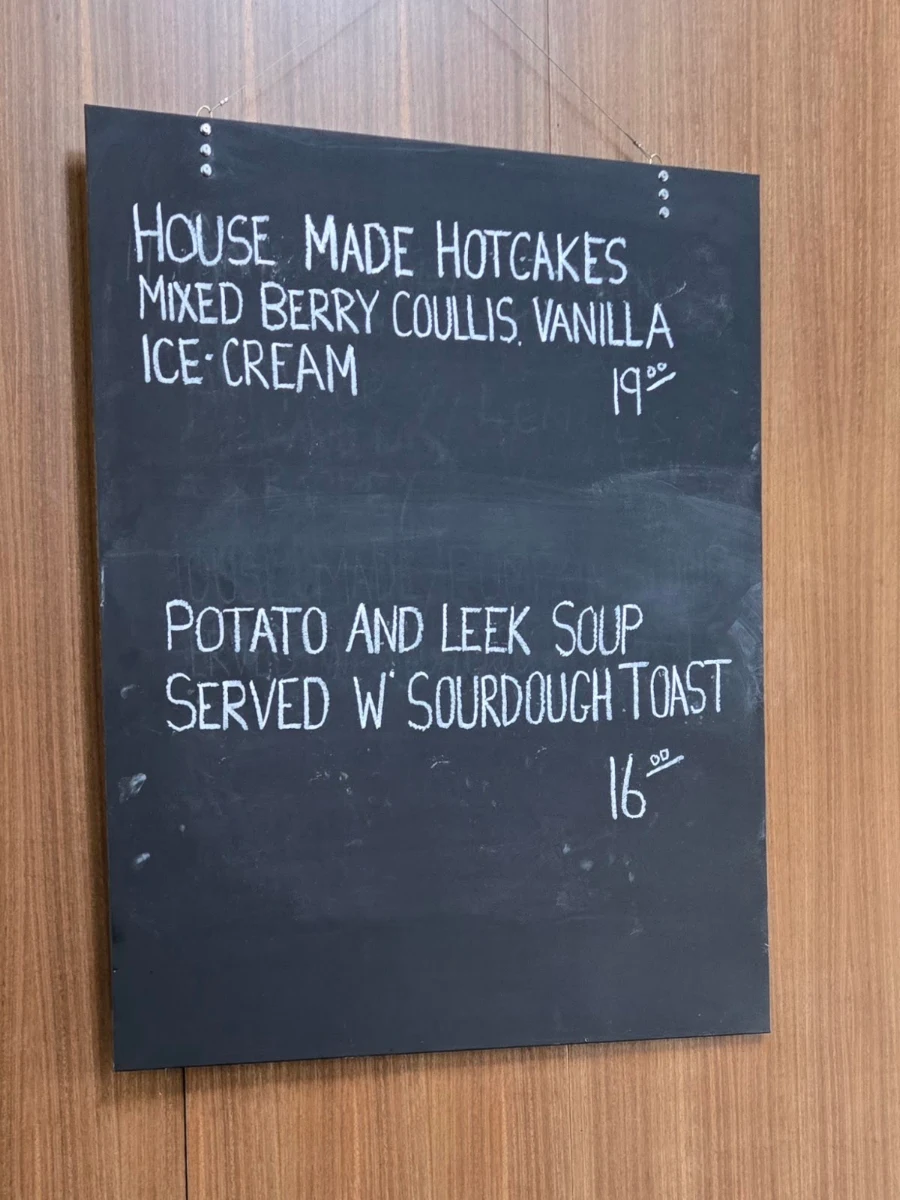 HOUSE MADE HOTCAKES
MIXED BERRY COULLIS. VANILLA
ICE-CREAM 19.00
POTATO AND LEEK SOUP
SERVED W' SOURDOUGH TOAST
16.00